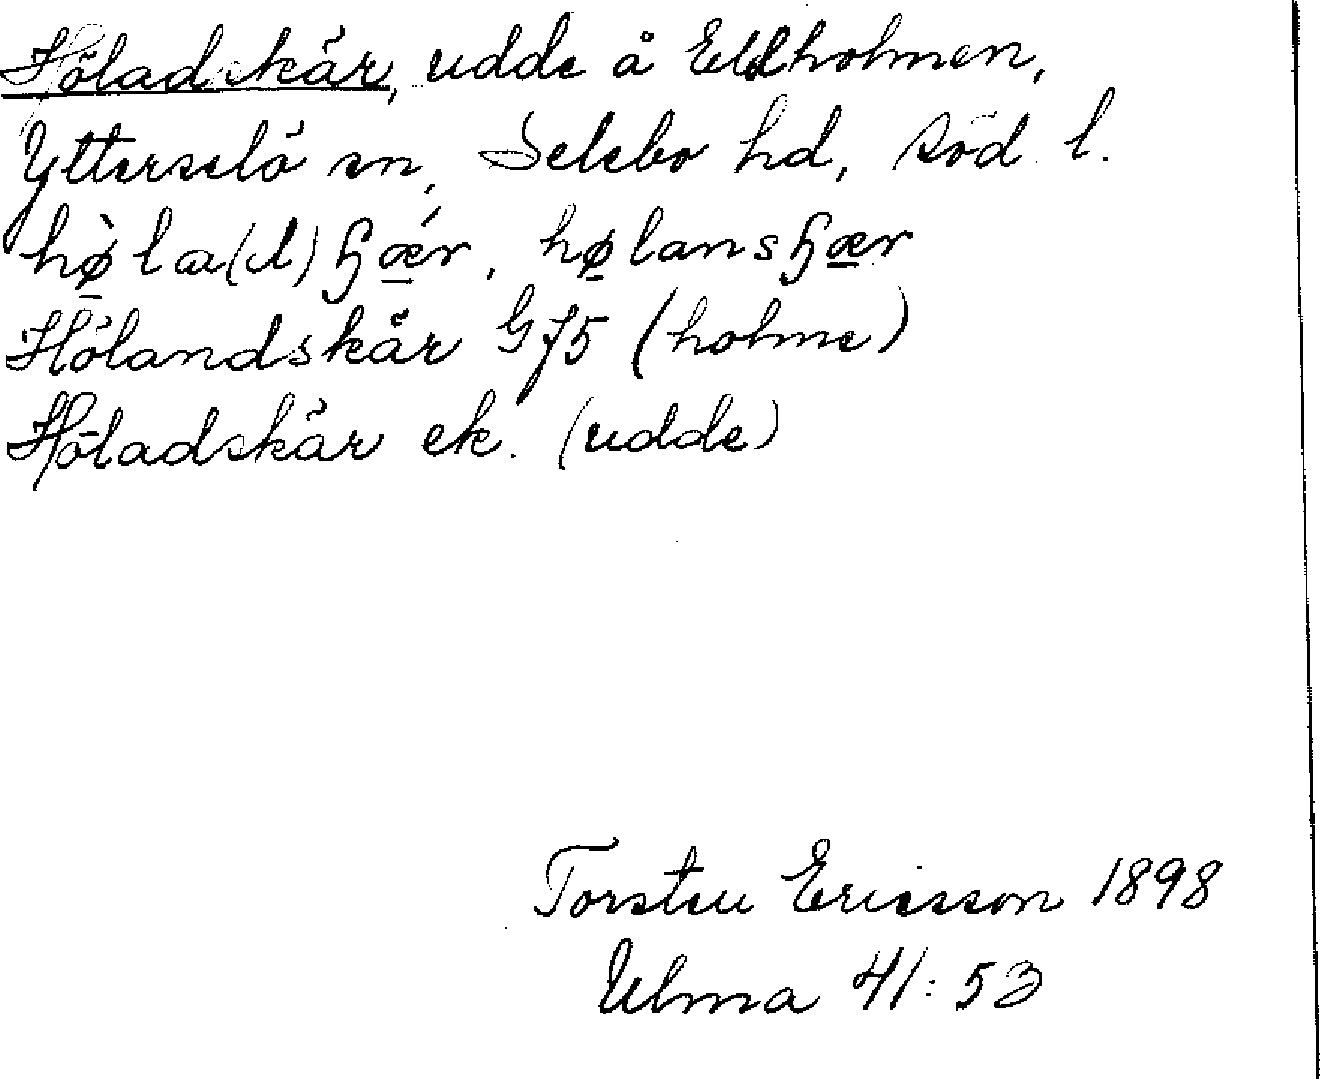 Höladskär, udde å Eldholmen,
Ytterselö sn, Selebo hd, Söd. l.
hø̀la(d)ʂǽr, hølansʂær
Hölandskär G75 (holme)
Höladskär ek. (udde)
Torsten Ericsson 1898
Ulma 41:53